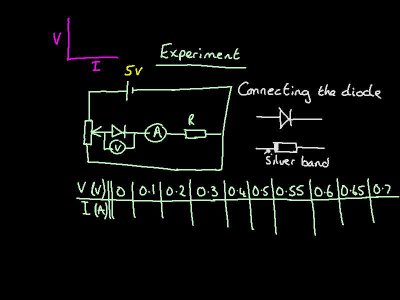 V
I
Experiment
5V
Connecting the diode
R
A
V
Silver band
V (V) 0 0.1 0.2 0.3 0.4 0.5 0.55 0.6 0.65 0.7
I (A)